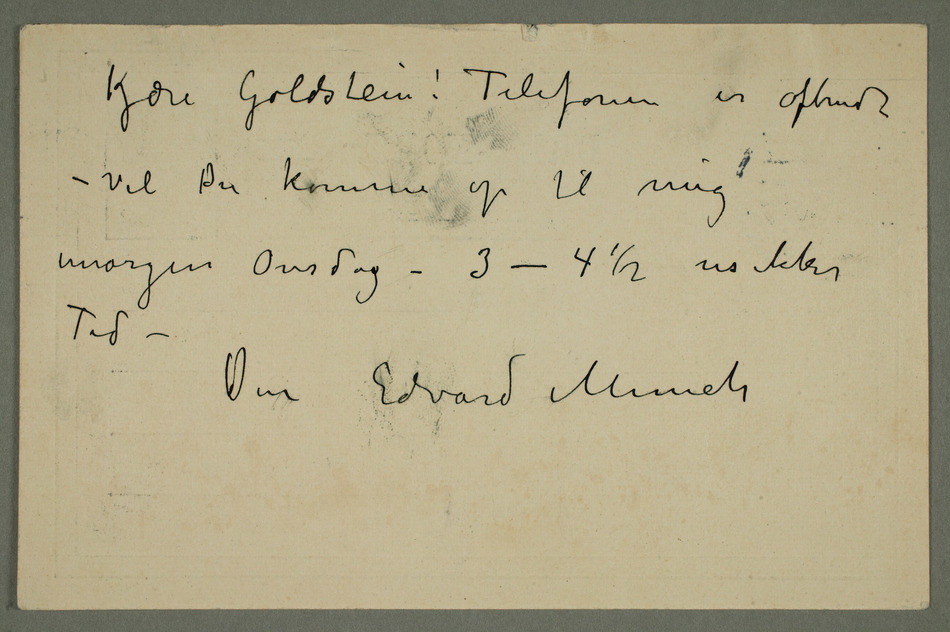 Kjære Goldstein! Telefonen er afbrudt
– vil Du komme op til mig
imorgen Onsdag – 3 – 4 1/2 er sikker
Tid –
Din Edvard Munch